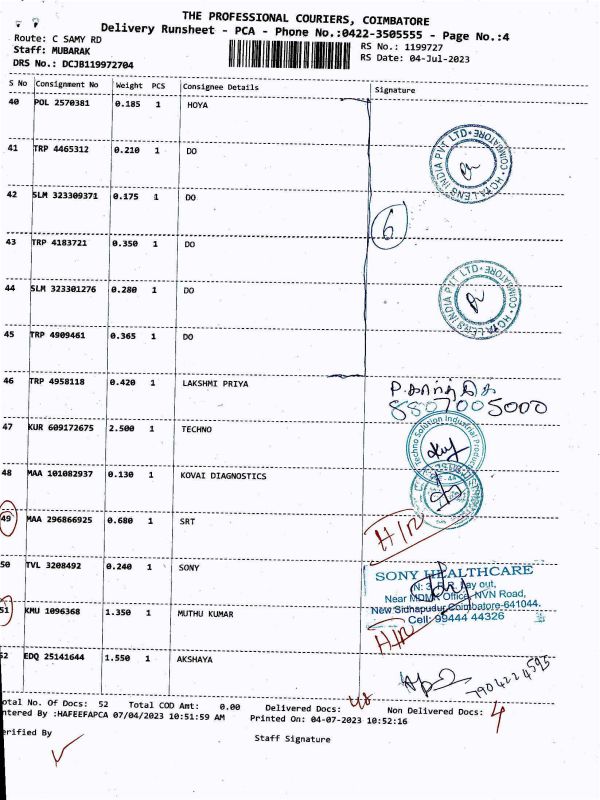 THE PROFESSIONAL COURIERS, COIMBATORE
Delivery Runsheet - PCA - Phone No.:0422-3505555 - Page No.:4
Route: C SAMY RD
RS No.: 1199727
Staff: MUBARAK
RS Date: 04-Jul-2023
DRS No.: DCJB119972704
S No Consignment No Weight PCS Consignee Details Signature
40 POL 2570381 0.185 1 HOYA
41 TRP 4465312 0.210 1 DO
42 SLM 323309371 0.175 1 DO
6
43 TRP 4183721 0.350 1 DO
44 SLM 323301276 0.280 1 DO
45 TRP 4909461 0.365 1 DO
46 TRP 4958118 0.420 1 LAKSHMI PRIYA
8807005000
47 KUR 609172675 2.500 1 TECHNO
Techno Solution Industrial
48 MAA 101082937 0.130 1 KOVAI DIAGNOSTICS
49 MAA 296866925 0.680 1 SRT
H/R
50 TVL 3208492 0.240 1 SONY
SONY HEALTHCARE
Near MDMK Office, NVN Road,
New Sidhapudur, Coimbatore-641044.
Cell: 99444 44326
51 KMU 1096368 1.350 1 MUTHU KUMAR
H/R
52 EDQ 25141644 1.550 1 AKSHAYA
7904224595
otal No. Of Docs: 52 Total COD Amt: 0.00 Delivered Docs: 48 Non Delivered Docs: 4
ntered By :HAFEEFAPCA 07/04/2023 10:51:59 AM Printed On: 04-07-2023 10:52:16
erified By
Staff Signature